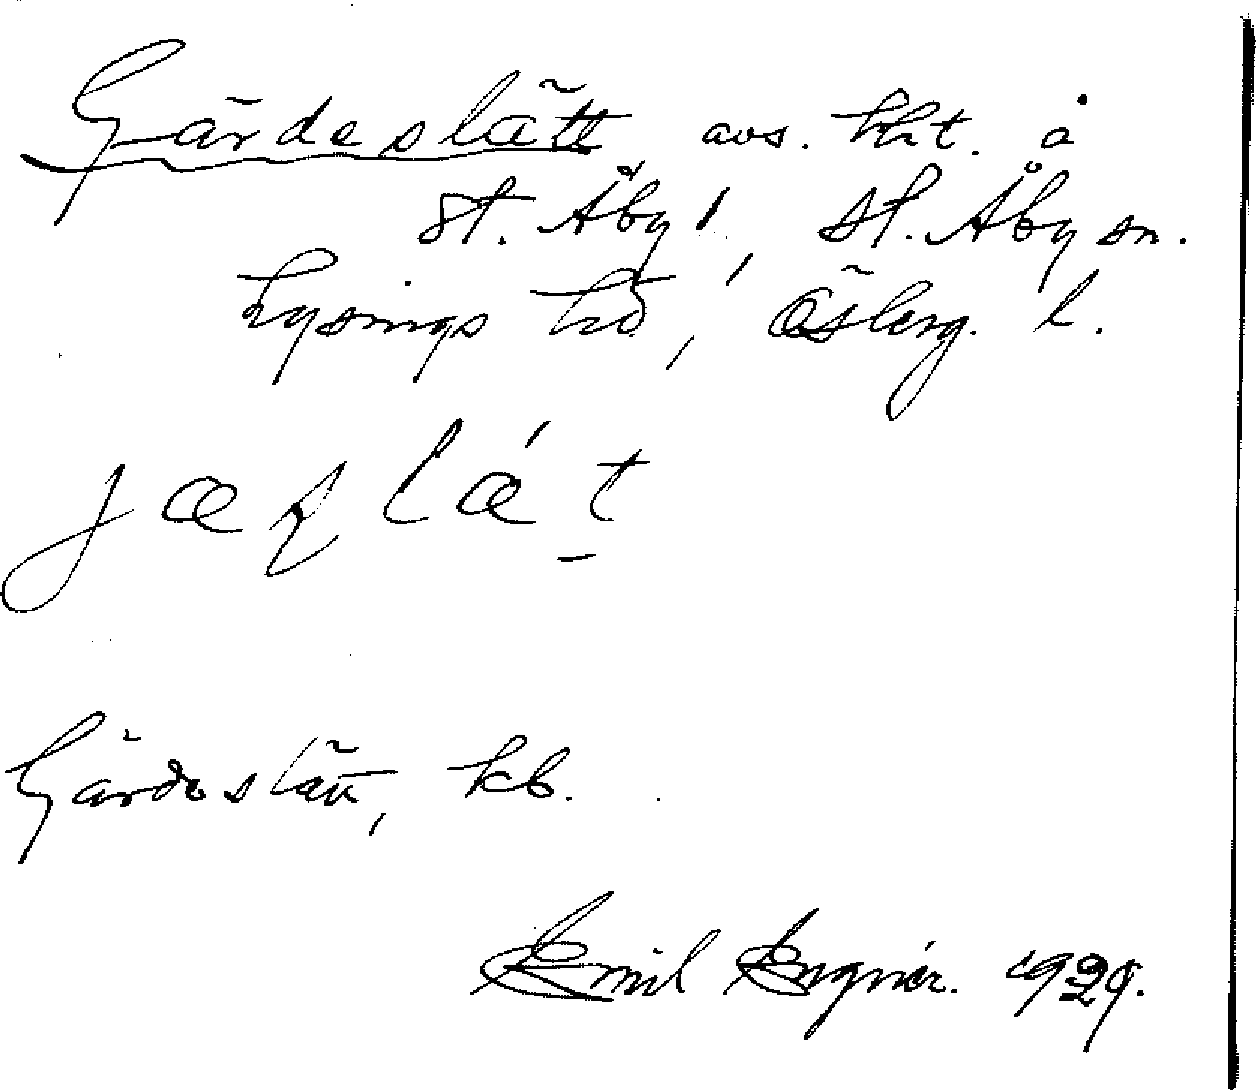 Gärdeslätt avs. lht. å
St. Åby 1, St. Åby sn.
Lysings hd, Österg. l.
Gärdeslätt, kb.
Emil Engnér. 1929.